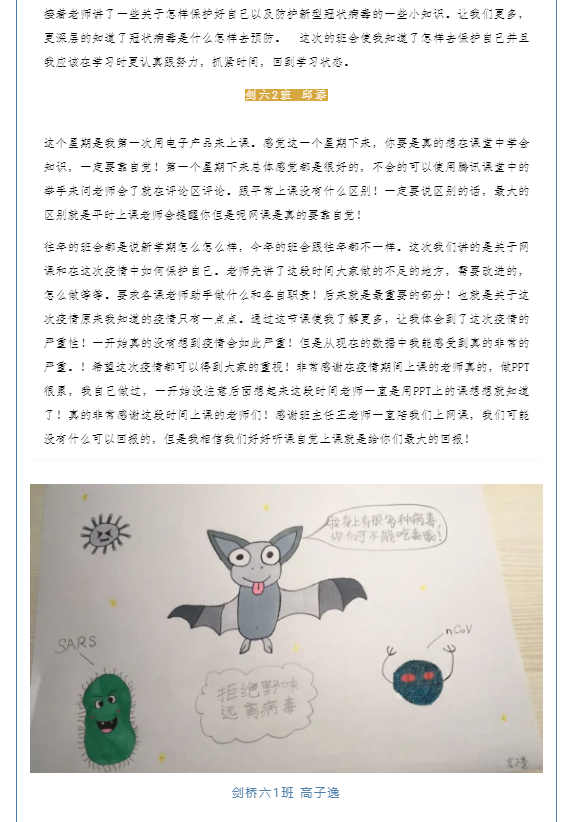 接着老师讲了一些关于怎样保护好自己以及防护新型冠状病毒的一些小知识。让我们更多，
更深层的知道了冠状病毒是什么怎样去预防。 这次的班会使我知道了怎样去保护自己并且
我应该在学习时更认真跟努力，抓紧时间，回到学习状态。
剑六2班 邱添
这个星期是我第一次用电子产品来上课。感觉这一个星期下来，你要是真的想在课堂中学会
知识，一定要靠自觉！第一个星期下来总体感觉都是很好的，不会的可以使用腾讯课堂中的
举手来问老师会了就在评论区评论。跟平常上课没有什么区别！一定要说区别的话，最大的
区别就是平时上课老师会提醒你但是呢网课是真的要靠自觉！
往年的班会都是说新学期怎么怎么样，今年的班会跟往年都不一样。这次我们讲的是关于网
课和在这次疫情中如何保护自己。老师先讲了这段时间大家做的不足的地方，需要改进的，
怎么做等等。要求各课老师助手做什么和各自职责！后来就是最重要的部分！也就是关于这
次疫情原来我知道的疫情只有一点点。通过这节课使我了解更多，让我体会到了这次疫情的
严重性！一开始真的没有想到疫情会如此严重！但是从现在的数据中我能感受到真的非常的
严重。！希望这次疫情都可以得到大家的重视！非常感谢在疫情期间上课的老师真的，做PPT
很累，我自己做过，一开始没注意后面想起来这段时间老师一直是用PPT上的课想想就知道
了！真的非常感谢这段时间上课的老师们！感谢班主任王老师一直陪我们上网课，我们可能
没有什么可以回报的，但是我相信我们好好听课自觉上课就是给你们最大的回报！
我身上有很多种病毒，
你们可不能吃我哦！
SARS
nCoV
拒绝野味
远离病毒
剑桥六1班 高子逸